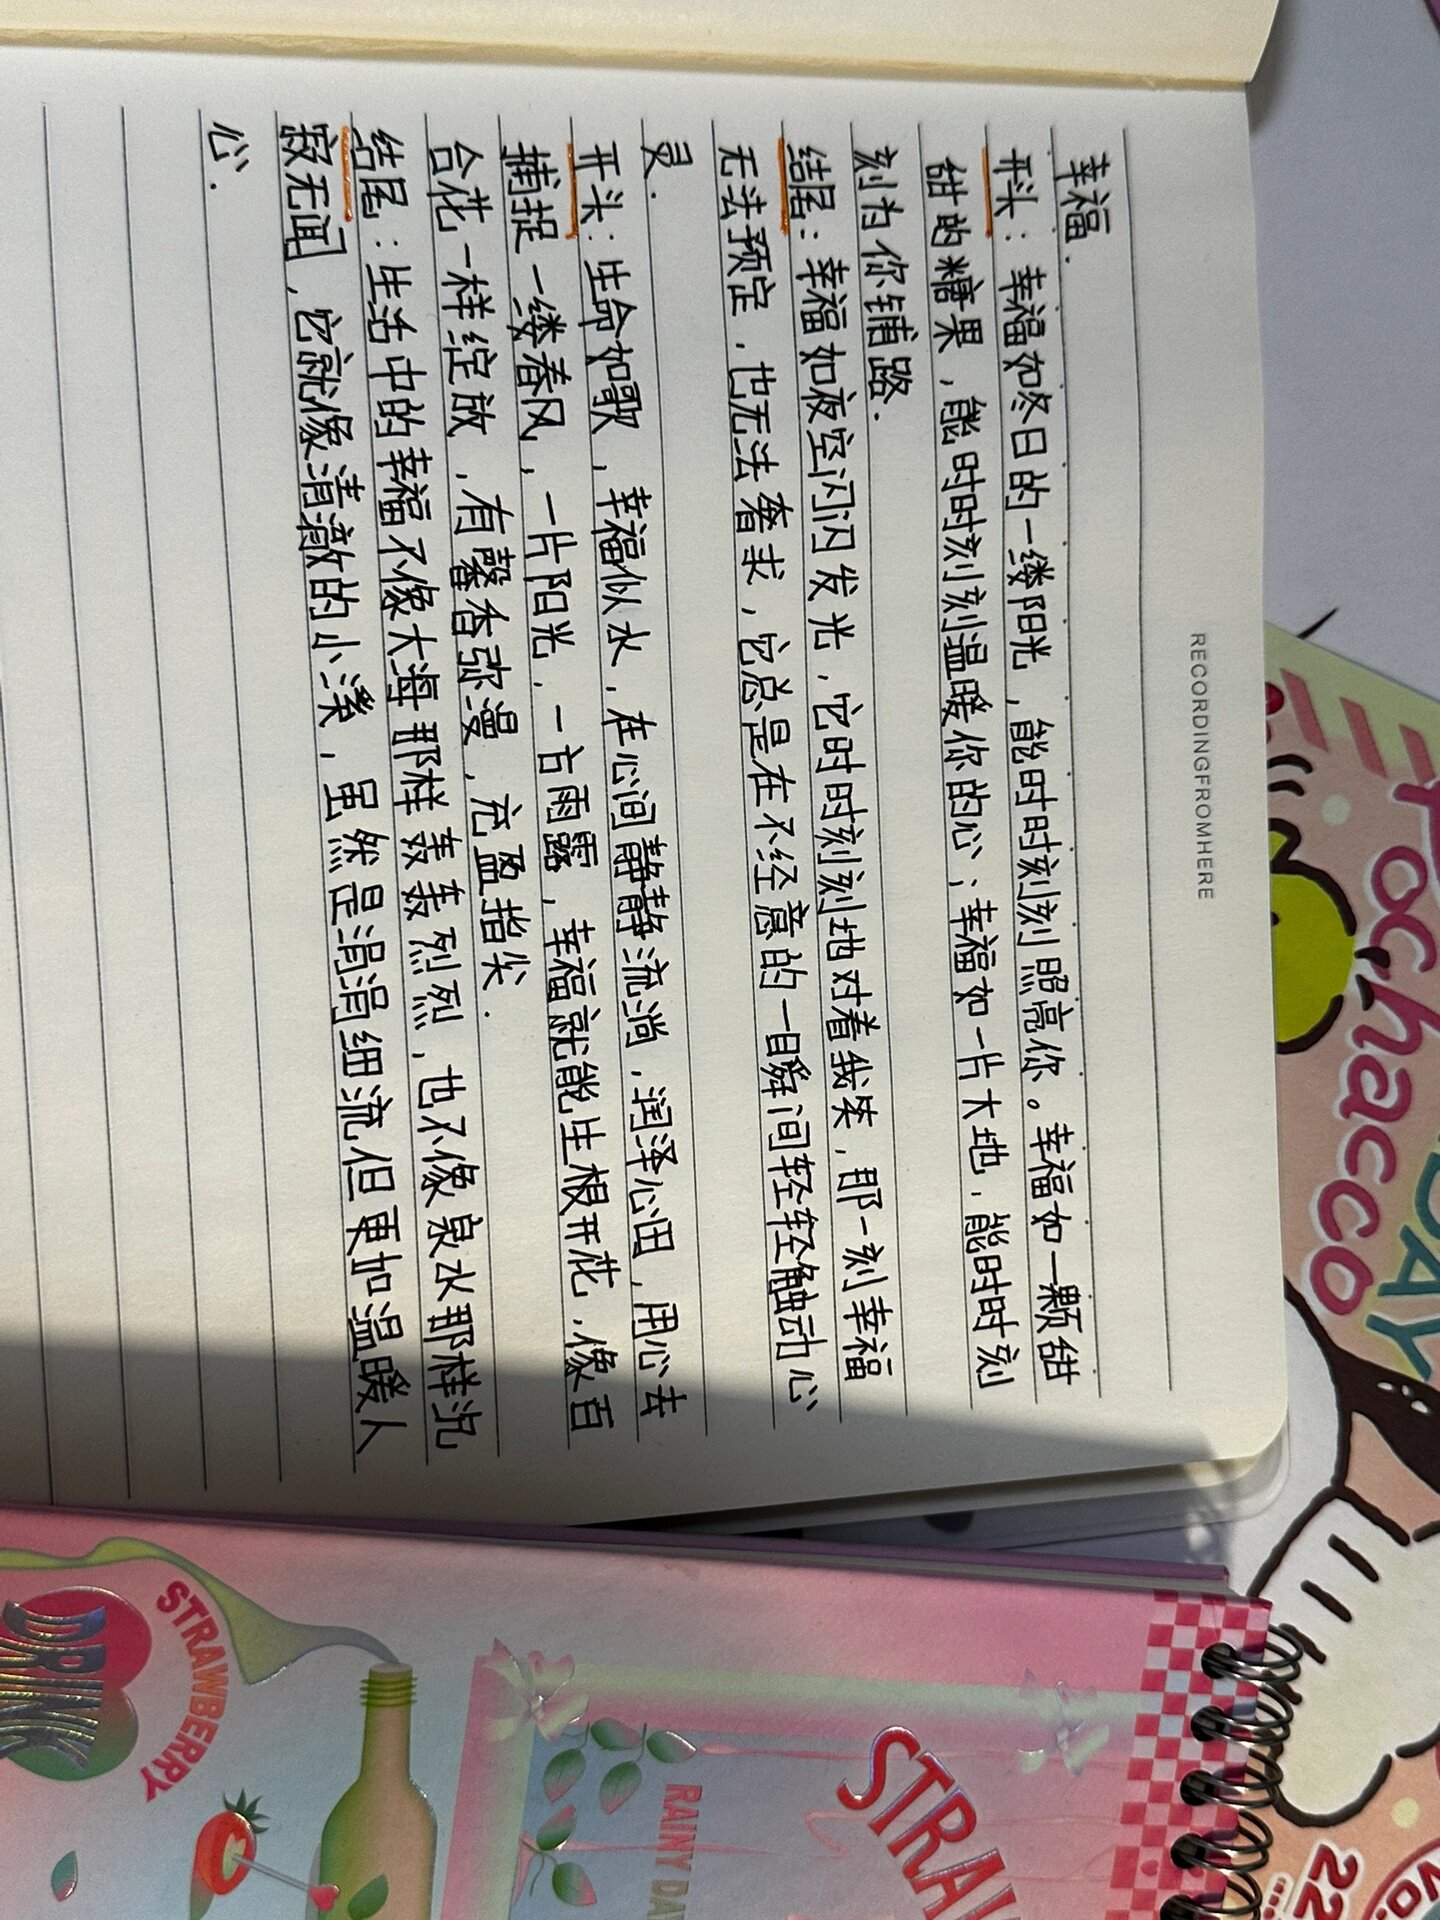 RECORDINGFROMHERE
幸福.
开头：幸福如冬日的一缕阳光，能时时刻刻照亮你。幸福如一颗甜
甜的糖果，能时时刻刻温暖你的心；幸福如一片大地，能时时刻
刻为你铺路.
结尾：幸福如夜空闪闪发光，它时时刻刻地对着我笑，那一刻幸福
无法预定，也无法奢求，它总是在不经意的一瞬间轻轻触动心
灵.
开头：生命如歌，幸福似水，在心间静静流淌，润泽心田，用心去
捕捉一缕春风，一片阳光，一言雨露，幸福就能生根开花，像百
合花一样绽放，有馨香弥漫，充盈指尖.
结尾：生活中的幸福不像大海那样轰轰烈烈，也不像泉水那样沉
寂无闻，它就像清澈的小溪，虽然是涓涓细流但更加温暖人
心.
Pochacco
DAY
22
STRAWBERRY
DRINK
RAINY DA
STRAW